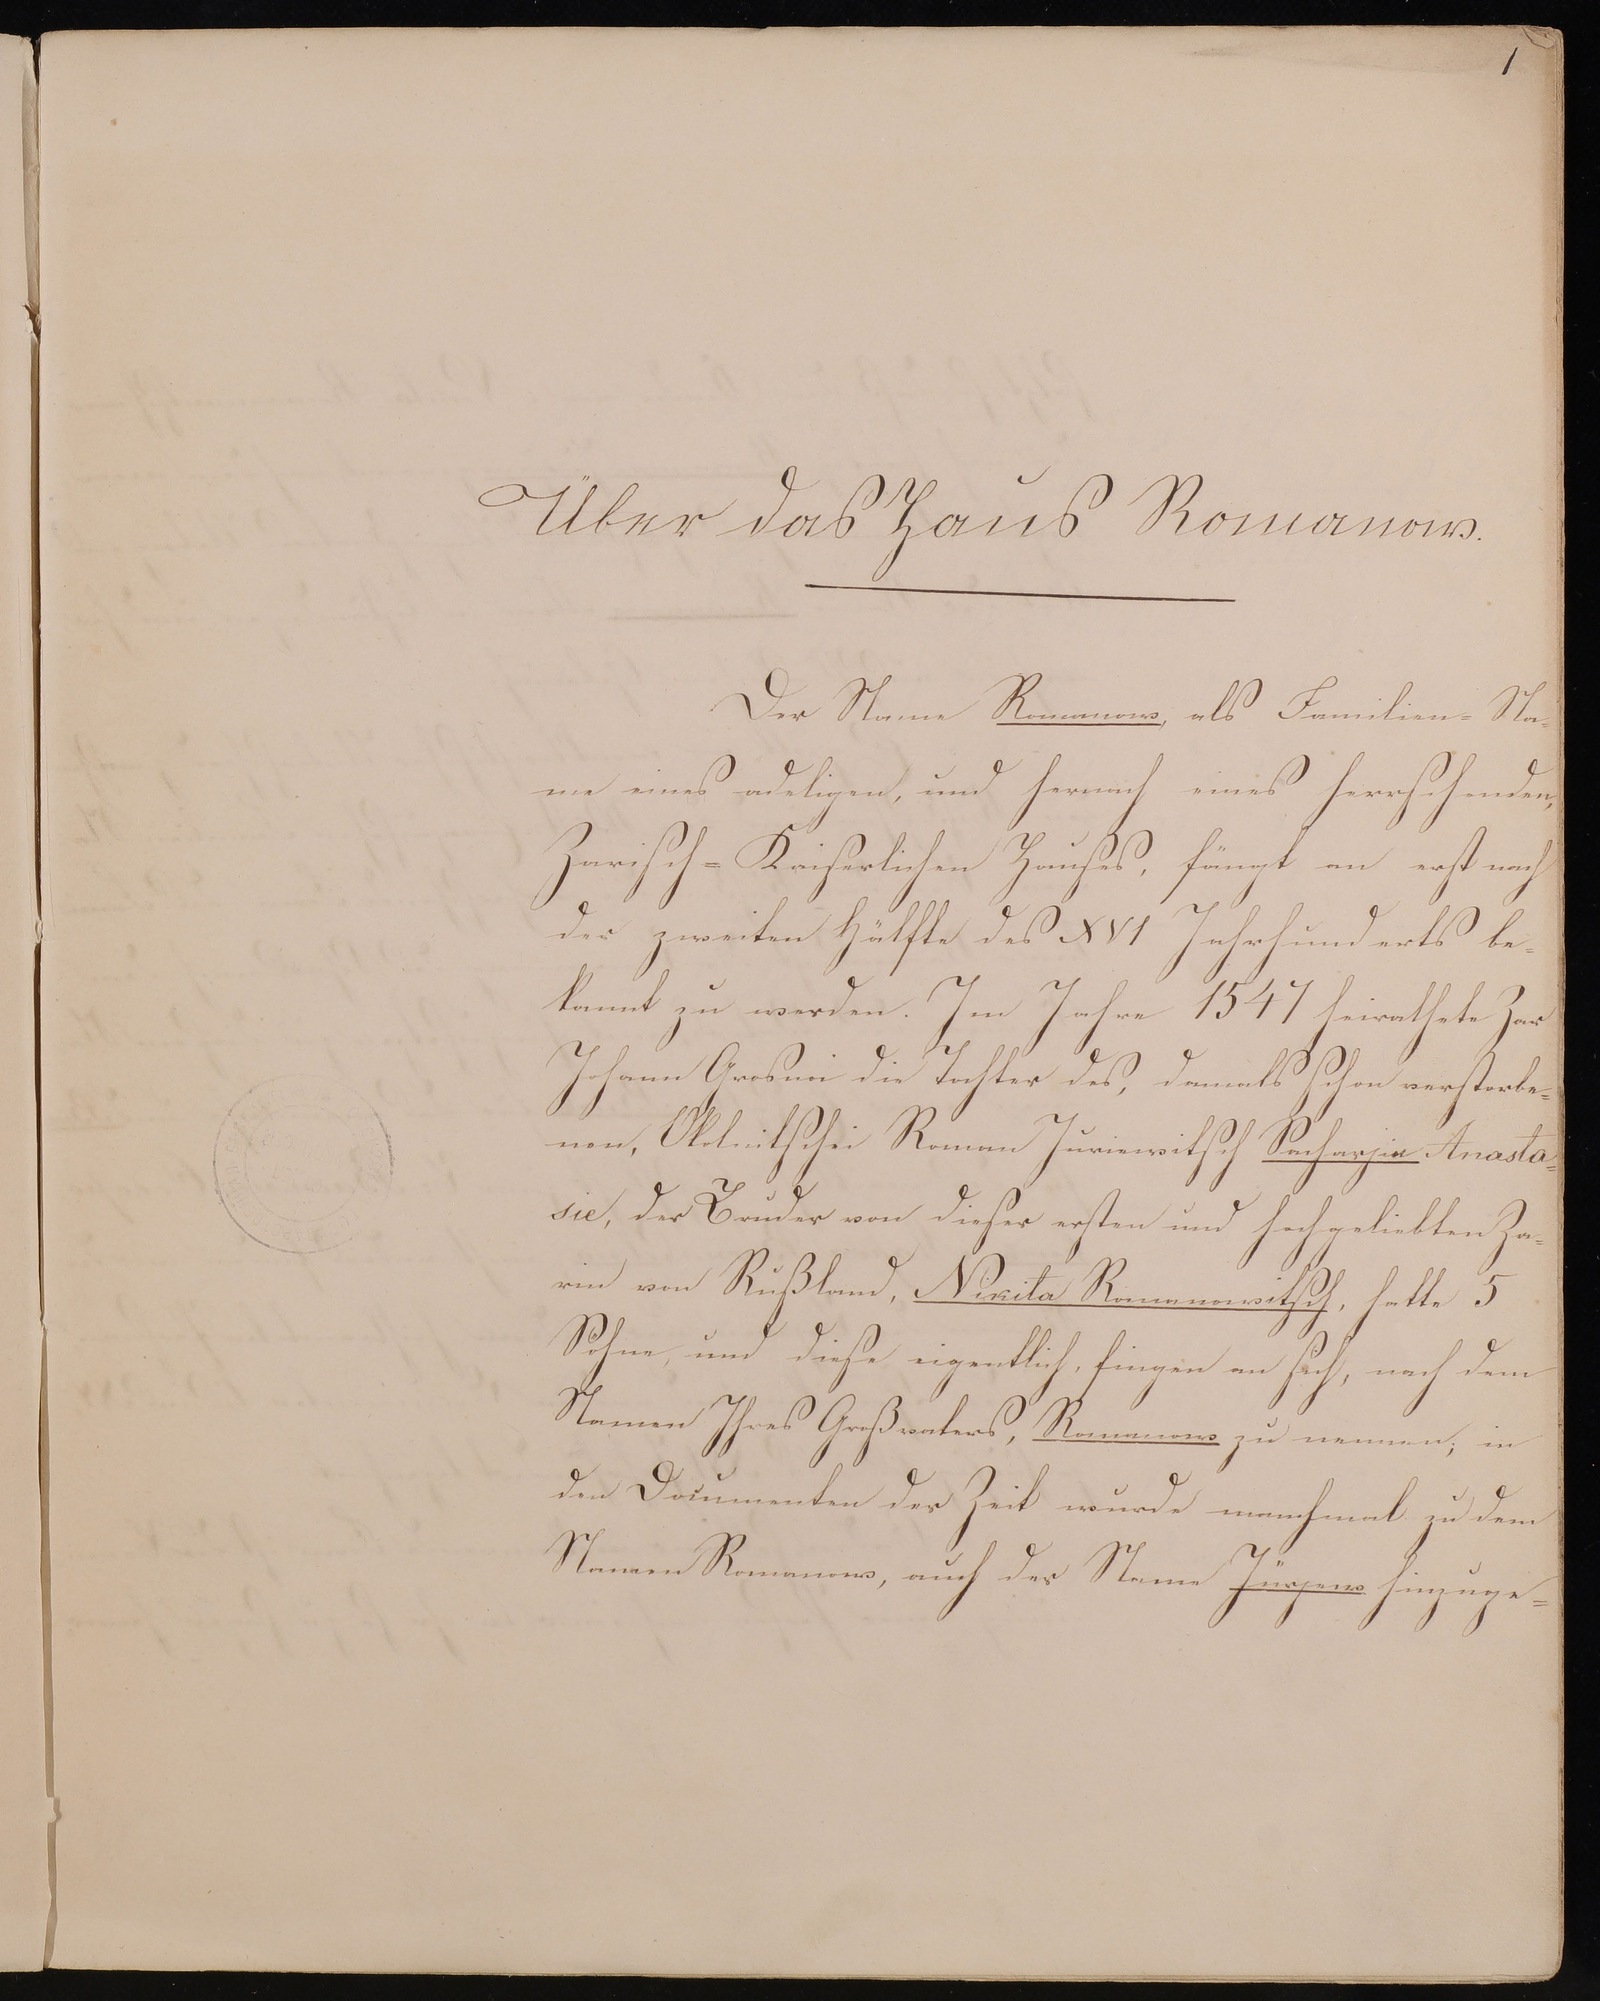 1
Über das Haus Romanow.
Der Name Romanow, als Familien= Na=
me eines adeligen, und hernach eines herrschenden,
Zarisch= Kaiserlichen Hauses, fängt an erst nach
der zweiten Hälfte des XVI Jahrhunderts be=
kannt zu werden. Im Jahre 1547 heirathete Zar
Johann Grosnoi die Tochter des, damals schon verstorbe=
nen, Okolnitschei Roman Juriewitsch Sacharjin Anasta=
sie, der Bruder von dieser ersten und hochgeliebten Za=
rin von Rußland, Nikita Romanowitsch, hatte 5
Söhne, und diese eigentlich, fingen an sich, nach dem
Namen Ihres Großvaters, Romanow zu nennen; in
den Documenten der Zeit wurde manchmal zu dem
Namen Romanow, auch der Name Jürjew hinzuge=